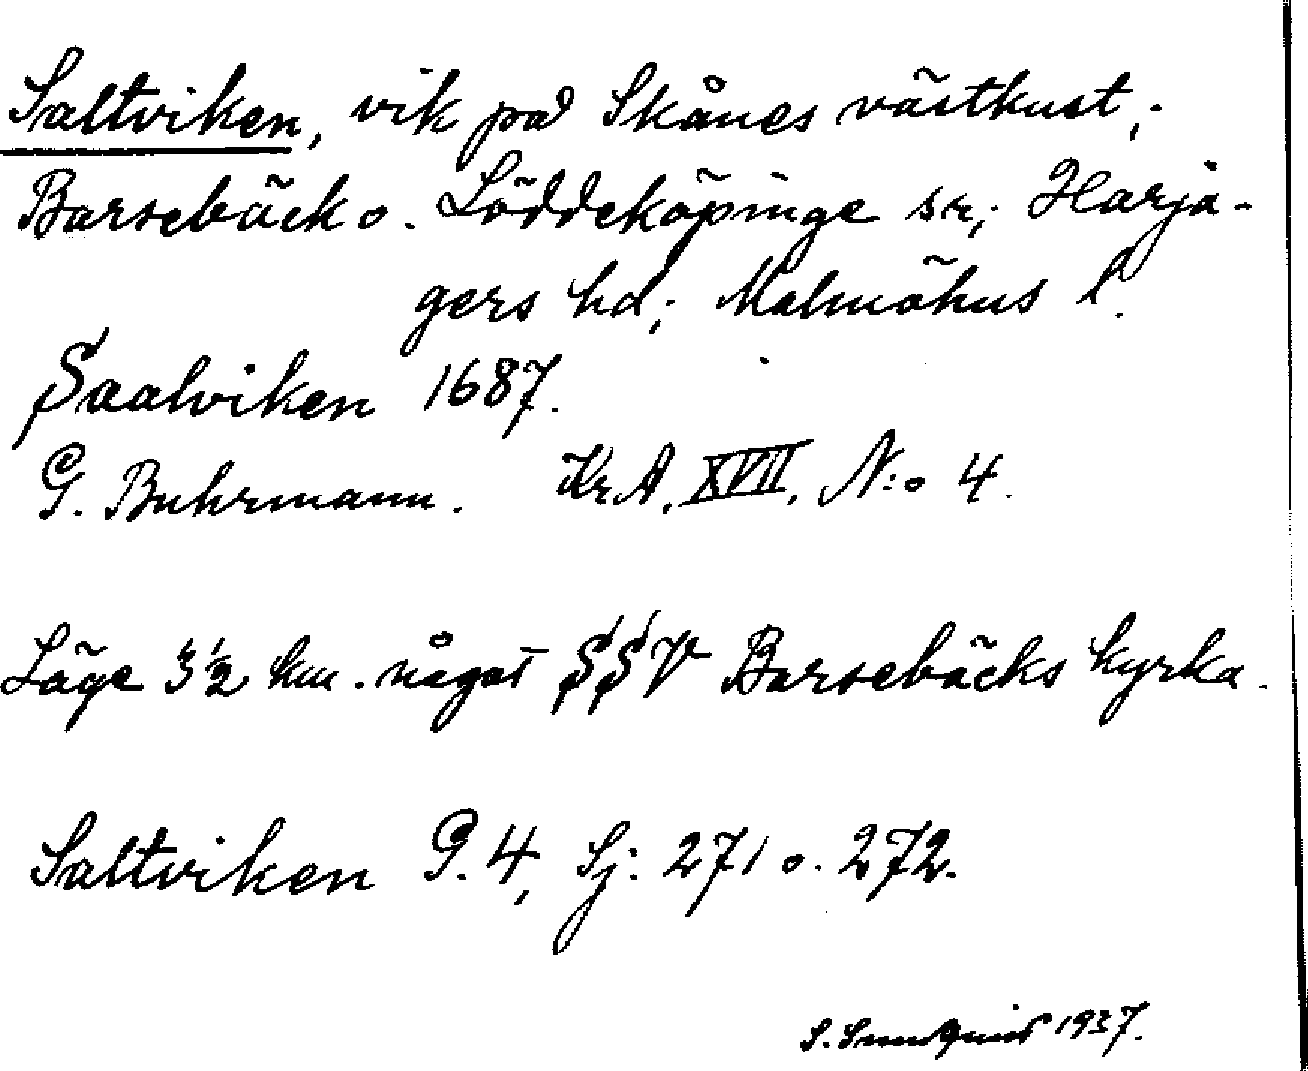 Saltviken, vik på Skånes västkust,;
Barsebäck o. Löddeköpinge sr,; Harja-
gers hd,; Malmöhus l.
Saalviken 1687.
G. Buhrmann. Kr.A. XVII. N:o 4.
Läge 3½ km. något SSV Barsebäcks kyrka.
Saltviken G. 4, Sj: 271 o. 272.
S. 1937.